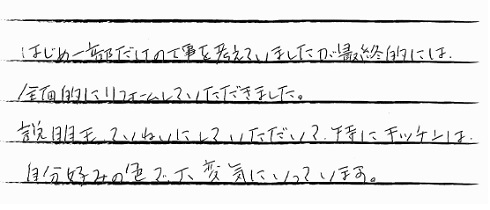 はじめ一部だけの工事を考えていましたが最終的には、
全面的にリフォームしていただきました。
説明もていねいにしていただいて、特にキッチンは、
自分好みの色で、大変気にいっています。